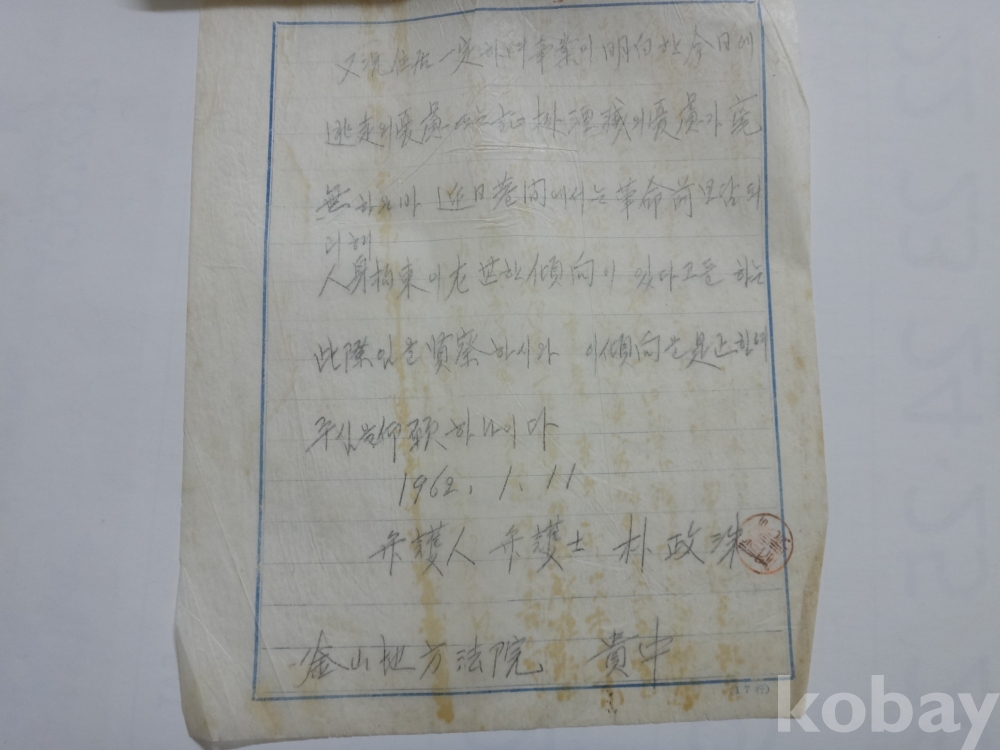 又況住居一定하며 事業이 明白한 今日에
逃走의憂慮 또는 證據湮滅의憂慮가 皆
無하온바 近日巷間에서는 革命前보담 되
려해
人身拘束이 尤甚한 傾向이 있다고들 하는
此際임을 賢察하시와 이傾向을 是正하여
주심을仰願하나이다
1962. 1. 11
弁護人 弁護士 朴政洙
釜山地方法院 貴中
kobay